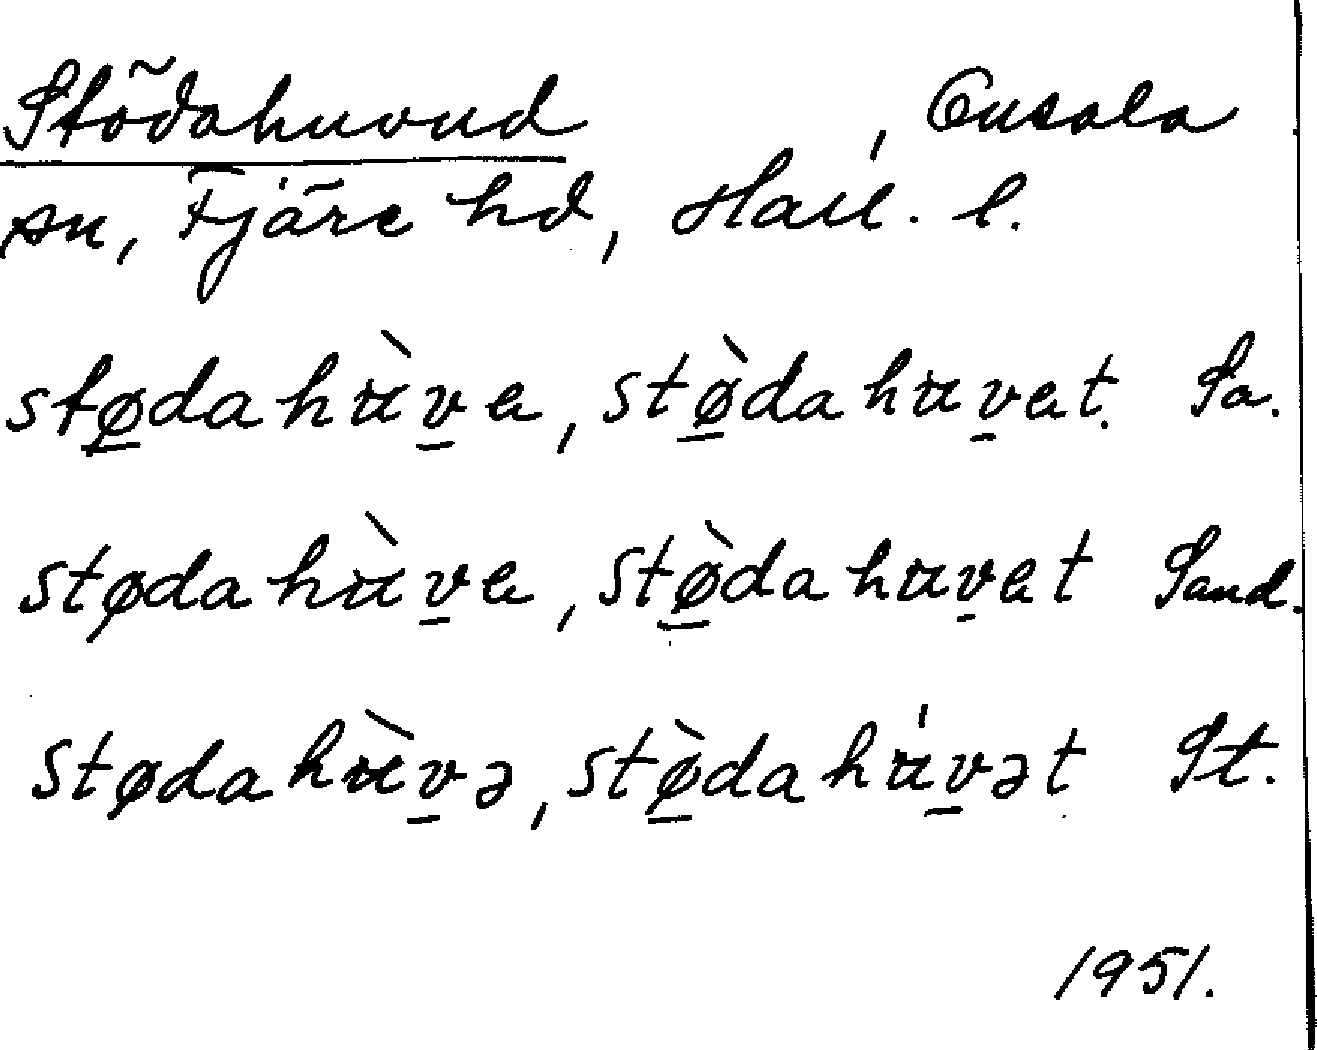 Stödahuvud , Onsala
sn, Fjäre hd, Hall. l.
stø̲dahʉ̀v̲e, stø̲̀dahʉv̲et. Sa.
stødahʉ̀v̲e, stø̲̀dahʉv̲et Sand.
stødahʉ̀v̲ə, stø̲̀dahʉ́v̲ət St.
1951.